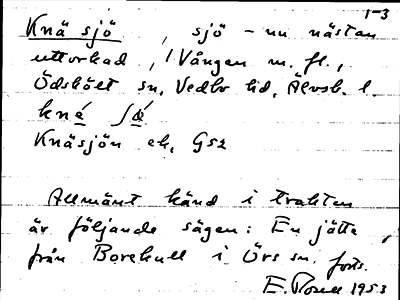 1-3
Knäsjö, sjö - nu nästan
uttorkad, i Vången m. fl.,
Ödskölt sn, Vedbo hd, Älvsb. l.
knȩ́ ʃǿ
Knäsjön ek, GS2
Allmänt känd i trakten
är följande sägen: En jätte,
från Borekull i Örs sn. forts.
E. Rosell 1953